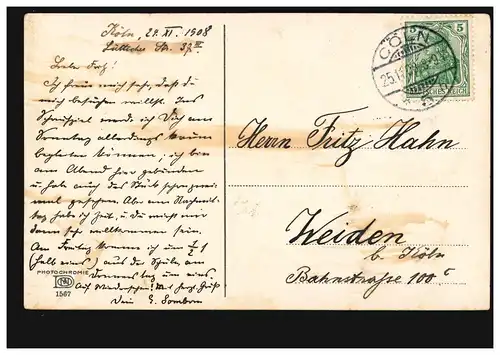 Köln, 24. XI. 1908
Lütticher Str. 37 III
Lieber Fritz!
Ich freue mich sehr, daß du
mich besuchen willst. Ins
Schauspiel werde ich Dich am
Sonntag allerdings kaum
begleiten können; ich bin
am Abend hier gebunden
u. habe auch das Stück schon zwei-
mal gesehen. Aber am Nachmit-
tag habe ich Zeit, u. du wirst mir
dann sehr willkommen sein.
Am Freitag komme ich um ½ 1
(halb eins) aus der Schule, am
Donnerstag um eins.
Auf Wiedersehen! Mit herzl. Gruß
Dein E.
PHOTOCHROMIE
1567
CÖLN
5
DEUTSCHES REICH
Herrn Fritz Hahn
Weiden
b. Köln
Bahnstraße 100 c